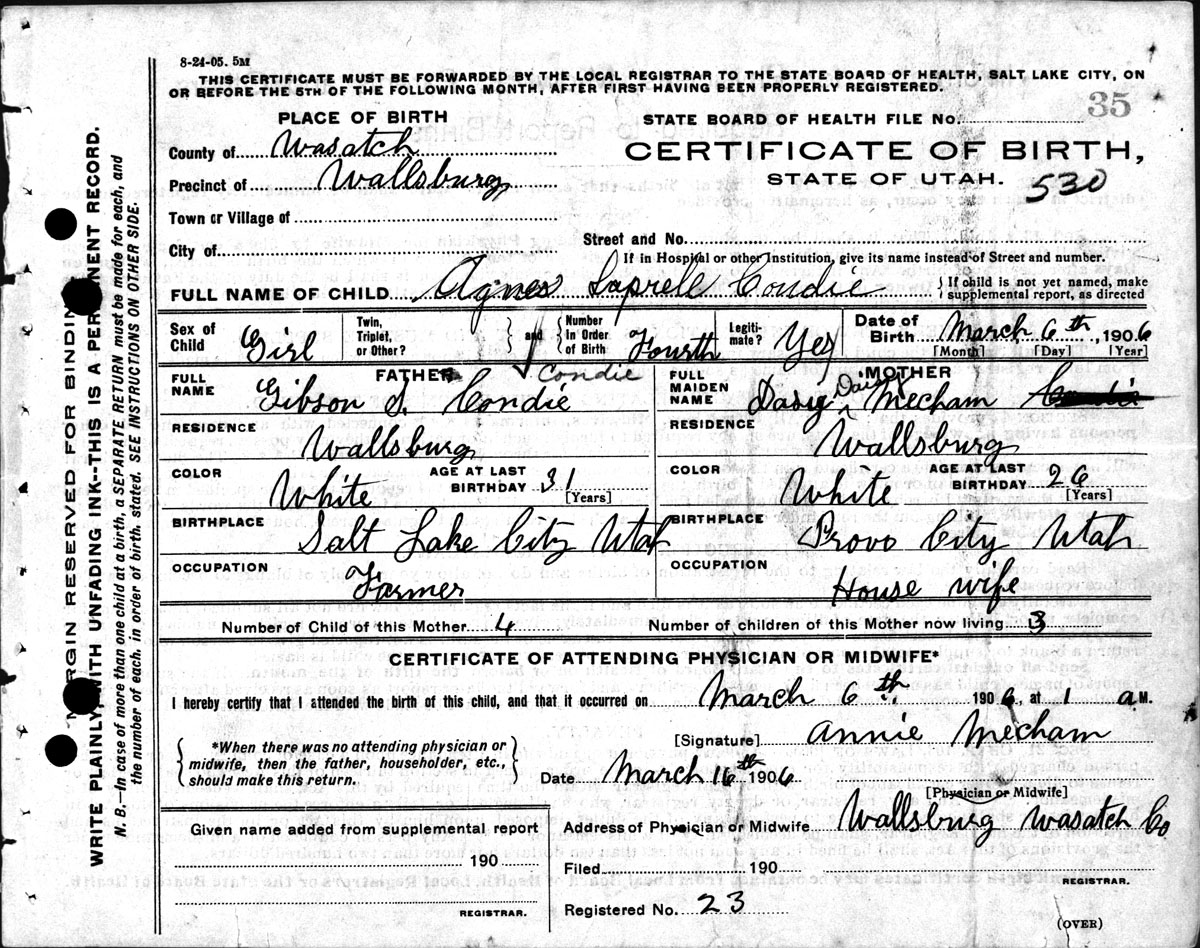 8-24-05. 5M
THIS CERTIFICATE MUST BE FORWARDED BY THE LOCAL REGISTRAR TO THE STATE BOARD OF HEALTH, SALT LAKE CITY, ON
OR BEFORE THE 5TH OF THE FOLLOWING MONTH, AFTER FIRST HAVING BEEN PROPERLY REGISTERED.
35
PLACE OF BIRTH
STATE BOARD OF HEALTH FILE No.
County of Wasatch
CERTIFICATE OF BIRTH,
Precinct of Wallsburg
STATE OF UTAH. 530
Town or Village of
Street and No.
City of
If in Hospital or other Institution, give its name instead of Street and number.
FULL NAME OF CHILD Agnes Laprell Condie { If child is not yet named, make supplemental report, as directed
Sex of Child Girl Twin, Triplet, or Other? } and { Number In Order of Birth Fourth Legiti-mate? Yes Date of Birth March 6th, 1906
[Month] [Day] [Year]
FATHER Condie
FULL NAME Gibson S. Condie
MOTHER
FULL MAIDEN NAME Davy Daisy Mecham Condie
RESIDENCE Wallsburg
RESIDENCE Wallsburg
COLOR White AGE AT LAST BIRTHDAY 31 [Years]
COLOR White AGE AT LAST BIRTHDAY 26 [Years]
BIRTHPLACE Salt Lake City Utah
BIRTHPLACE Provo City Utah
OCCUPATION Farmer
OCCUPATION House wife
Number of Child of this Mother 4 Number of children of this Mother now living 3
CERTIFICATE OF ATTENDING PHYSICIAN OR MIDWIFE*
I hereby certify that I attended the birth of this child, and that it occurred on March 6th 1906, at 1 a M.
*When there was no attending physician or
midwife, then the father, householder, etc.,
should make this return.
[Signature] Annie Mecham
Date March 16th 1906
[Physician or Midwife]
Given name added from supplemental report
190
REGISTRAR.
Address of Physician or Midwife Wallsburg Wasatch Co
Filed 190
REGISTRAR.
Registered No. 23
(OVER)
MARGIN RESERVED FOR BINDING
WRITE PLAINLY, WITH UNFADING INK--THIS IS A PERMANENT RECORD.
N. B.—In case of more than one child at birth, a SEPARATE RETURN must be made for each, and
the number of each, in order of birth, stated. SEE INSTRUCTIONS ON OTHER SIDE.